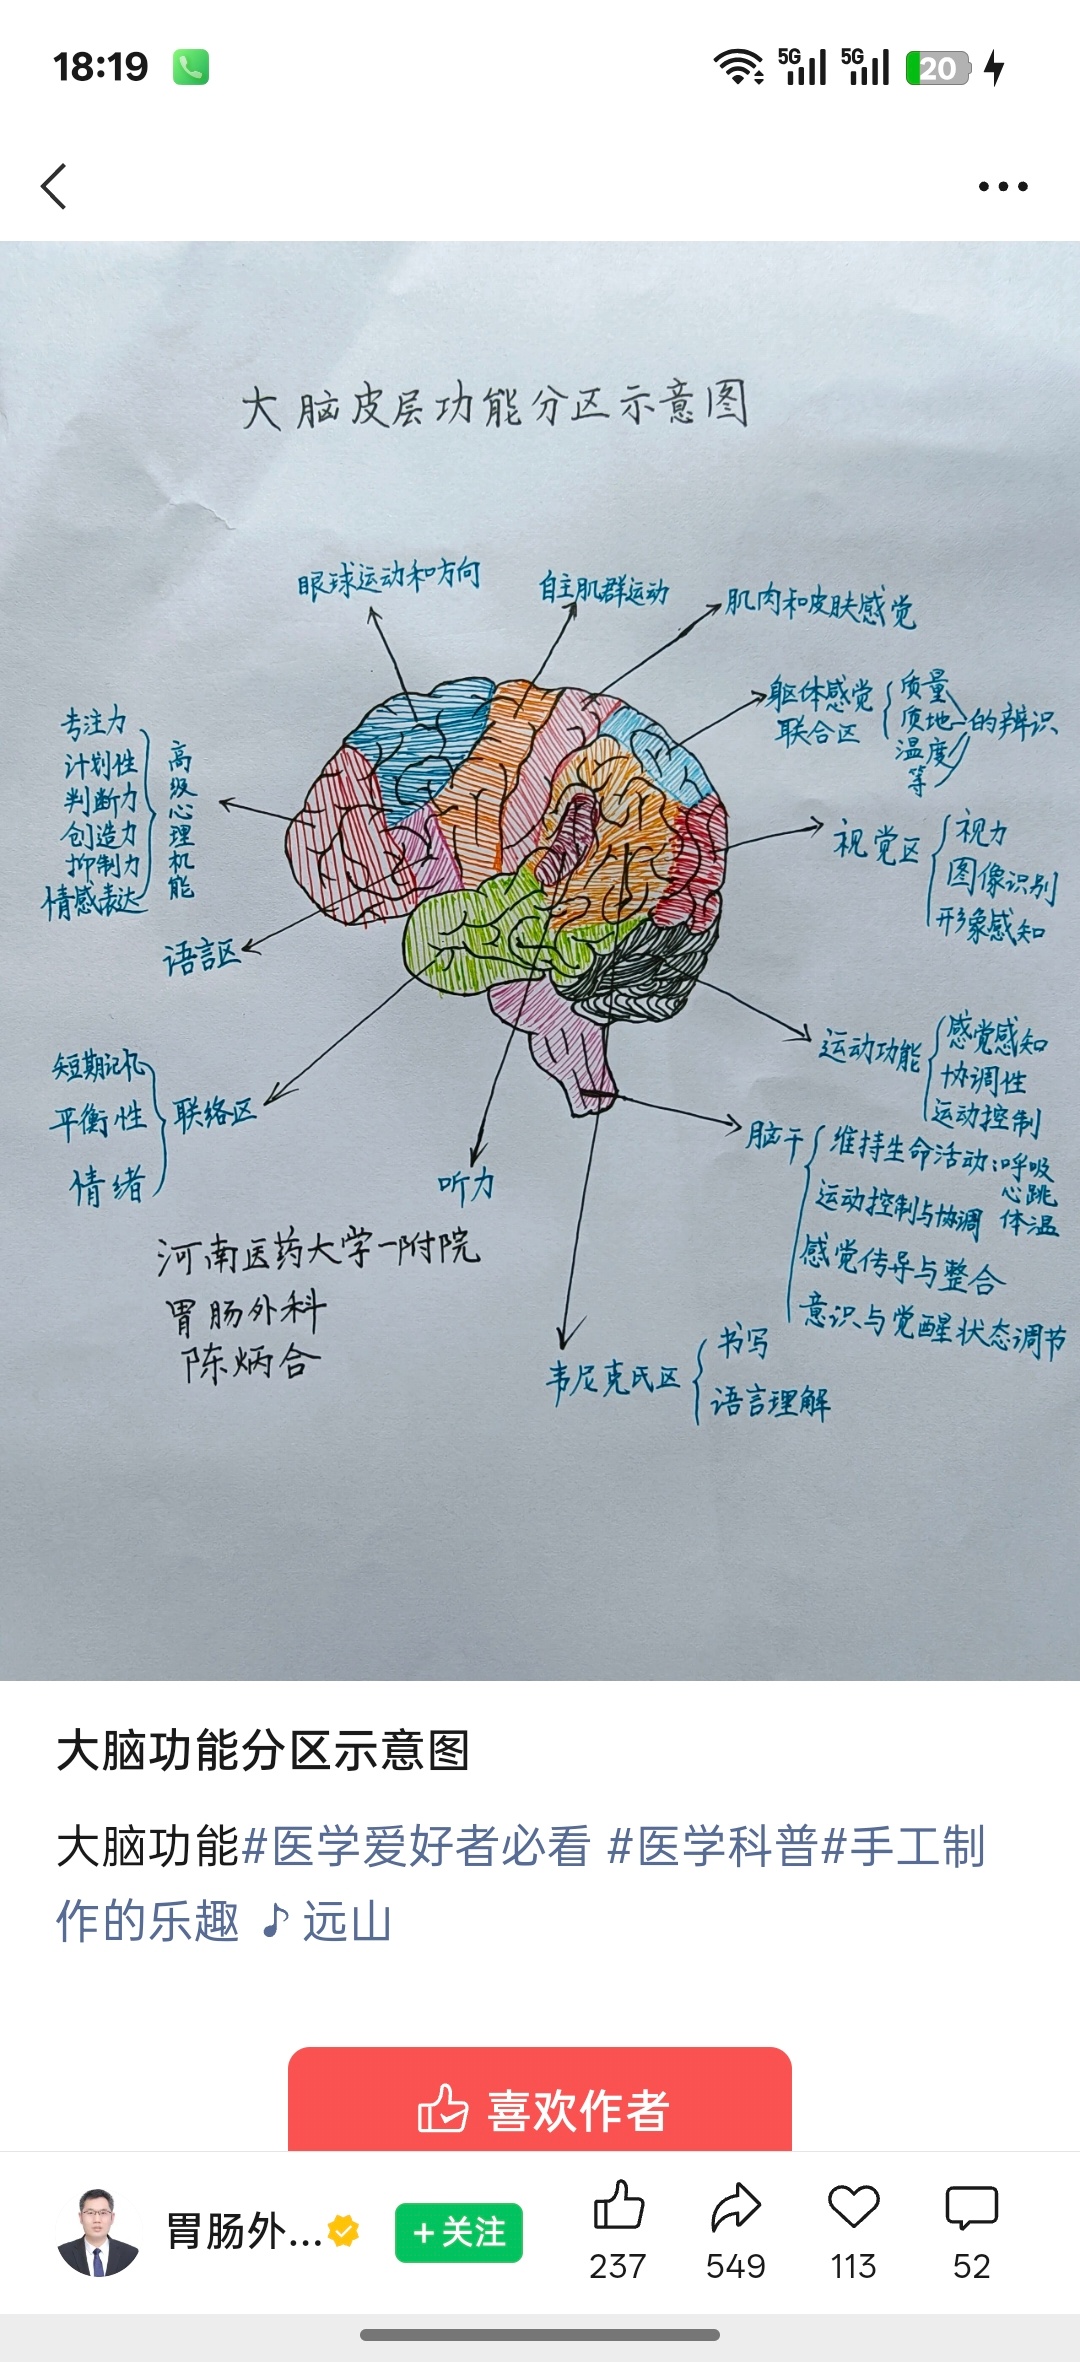 18:19
5G
5G
20
大脑皮层功能分区示意图
眼球运动和方向
自主肌群运动
肌肉和皮肤感觉
躯体感觉
联合区
质量
质地
温度
等
的辨识
专注力
计划性
判断力
创造力
抑制力
情感表达
高级心理机能
语言区
视觉区
视力
图像识别
形象感知
短期记忆
平衡性
情绪
联络区
听力
运动功能
感觉感知
协调性
运动控制
脑干
维持生命活动:呼吸
心跳
体温
运动控制与协调
感觉传导与整合
意识与觉醒状态调节
韦尼克氏区
书写
语言理解
河南医药大学一附院
胃肠外科
陈炳合
大脑功能分区示意图
大脑功能#医学爱好者必看 #医学科普#手工制
作的乐趣 ♪ 远山
喜欢作者
胃肠外...
+关注
237
549
113
52